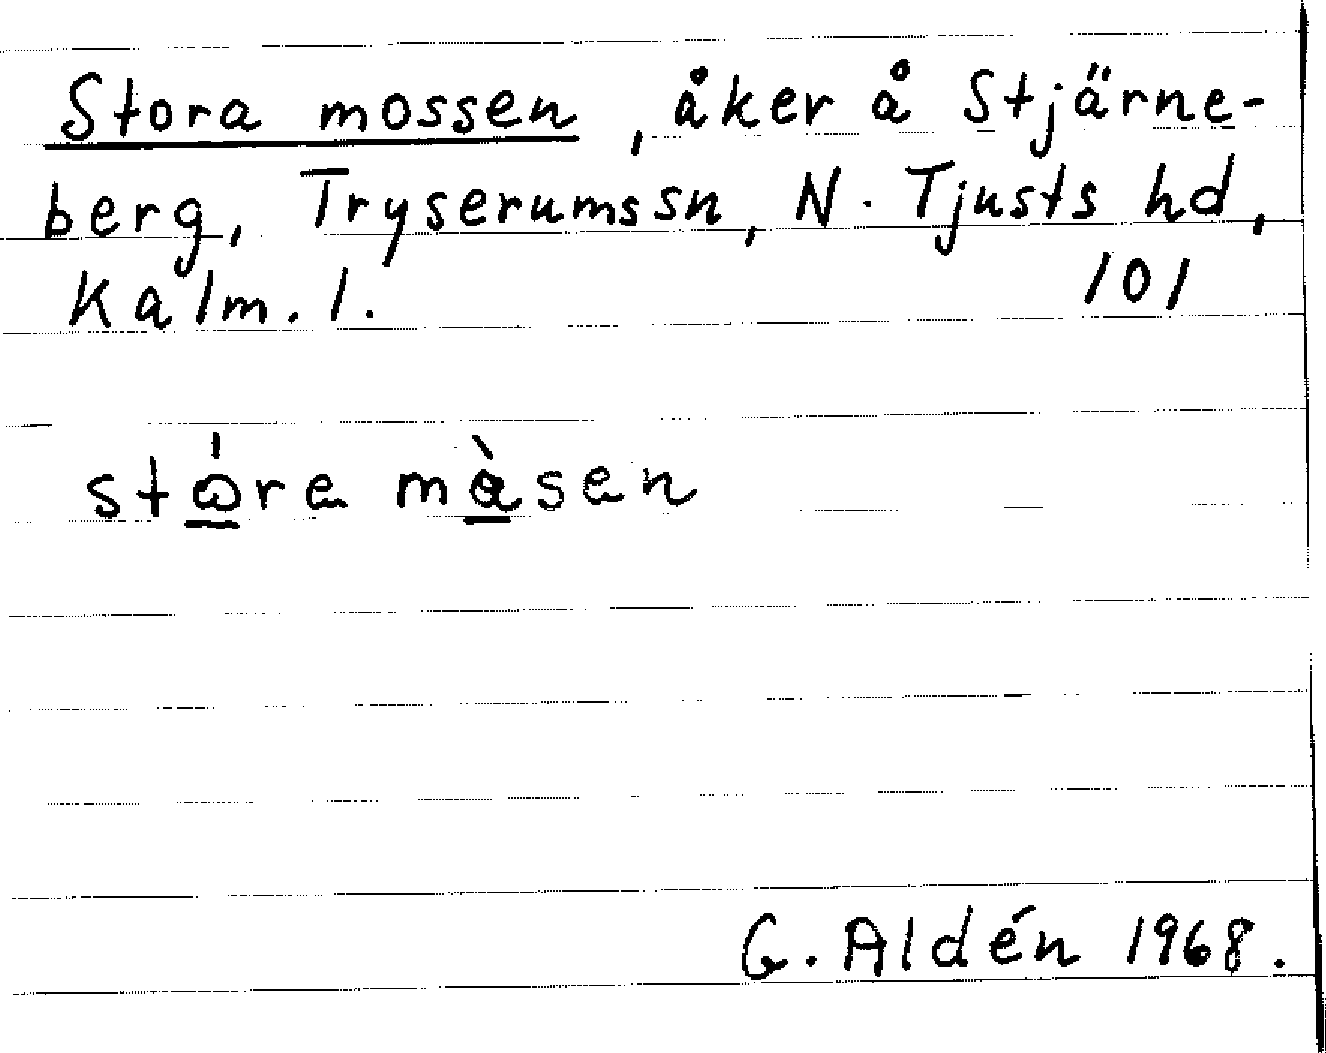 Stora mossen, åker å Stjärne-
berg, Tryserumssn, N. Tjusts hd,
Kalm. l. 101
stɷ́ra màsen
G. Aldén 1968.